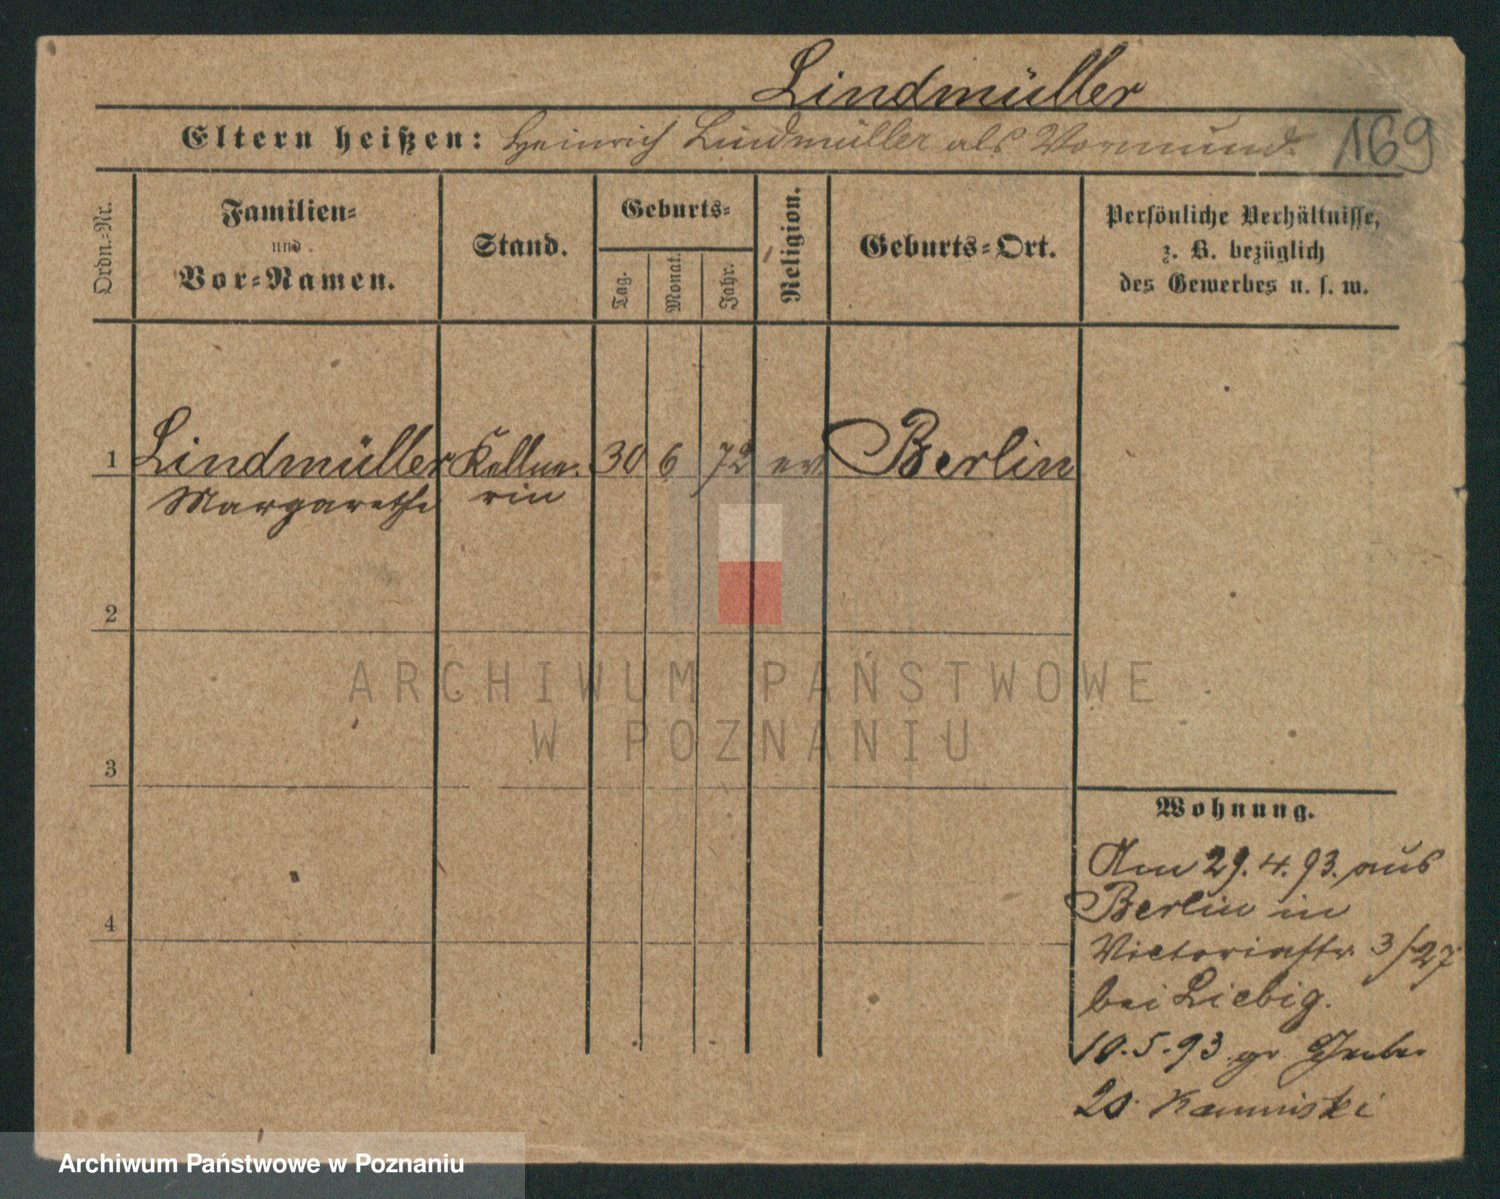 Lindmüller
Eltern heißen: Heinrich Lindmüller als Vormund.
169
Ordn.-Nr.
Familien-
und
Vor-Namen.
Stand.
Geburts-
Tag.
Monat.
Jahr.
Religion.
Geburts-Ort.
Persönliche Verhältnisse,
z. B. bezüglich
des Gewerbes u. s. w.
1 Lindmüller Kellne- 30 6 72 ev Berlin
Margarethe rin
2
3
4
Wohnung.
Am 29.4.93. aus
Berlin in
Victoriastr. 3/27
bei Liebig.
10.5.93 gr Gerber
20 Kaminski
ARCHIWUM PAŃSTWOWE
W POZNANIU
Archiwum Państwowe w Poznaniu